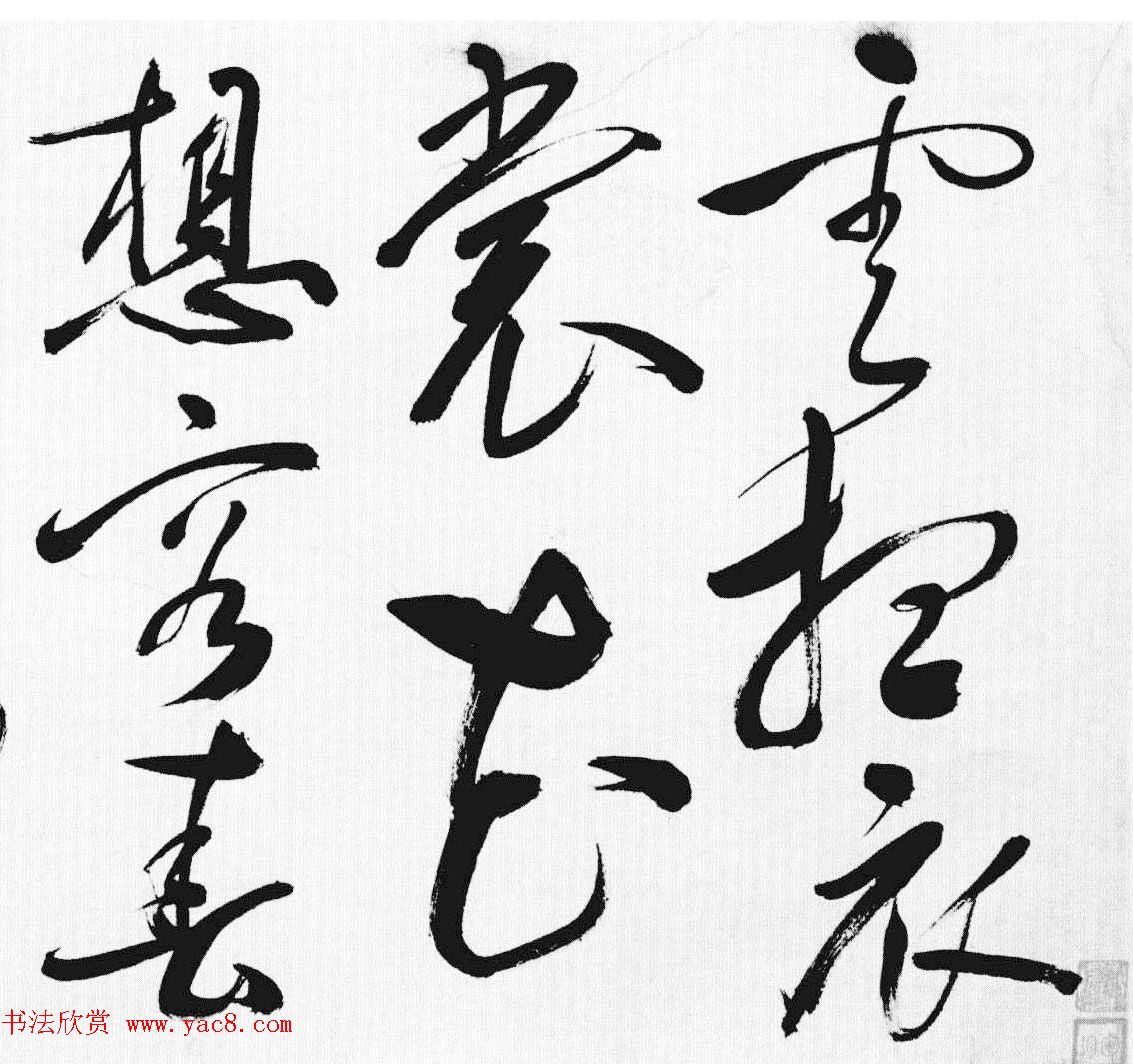 雲想衣
裳花
想容春
书法欣赏 www.yac8.com